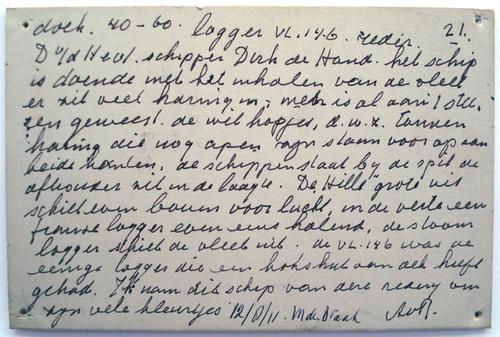 doek. 40-60. logger VL.146. reder. 21.
D v/d Heul. schipper Dirk de Hond. het schip
is doende met het inhalen van de vleet
er zit veel haring in, men is al aan 't stee-
ren geweest. de wit hopjes, d.w.z. tonnen
haring die nog open zijn staan voorop aan
beide kanten, de schipper staat by de spil de
afhouder zit in de laagte. De Hille grote vis
schiet even boven voor lucht, in de verte een
logger even eens halend, de stoom
logger schiet de vleet uit. de VL.146 was de
eenige logger die een hokshut aan dek heeft
gehad. Ik nam dit schip van deze rederij om
zijn vele kleurtjes 12/8/11. M de Draak AvR.